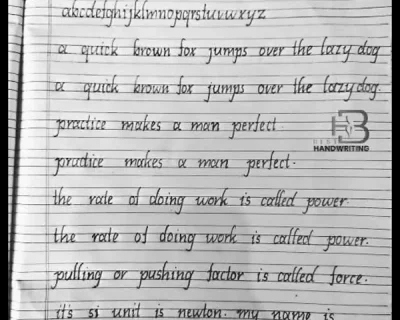 abcdefghijklmnopqrstuvwxyz
a quick brown fox jumps over the lazy dog
a quick brown fox jumps over the lazy dog.
practice makes a man perfect.
BEST
HANDWRITING
practice makes a man perfect.
the rate of doing work is called power.
the rate of doing work is called power.
pulling or pushing factor is called force.
it's si unit is newton. my name is